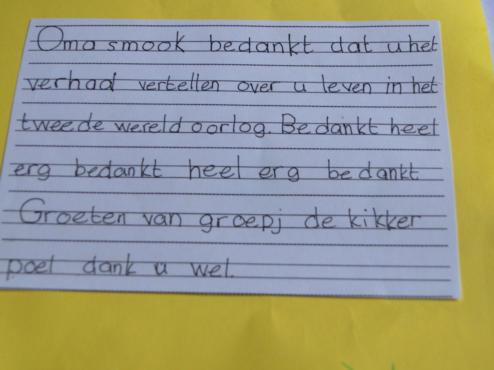 Oma smook bedankt dat u het
verhaal vertellen over u leven in het
tweede wereld oorlog. Bedankt heel
erg bedankt heel erg bedankt
Groeten van groepj de kikker
poel dank u wel.